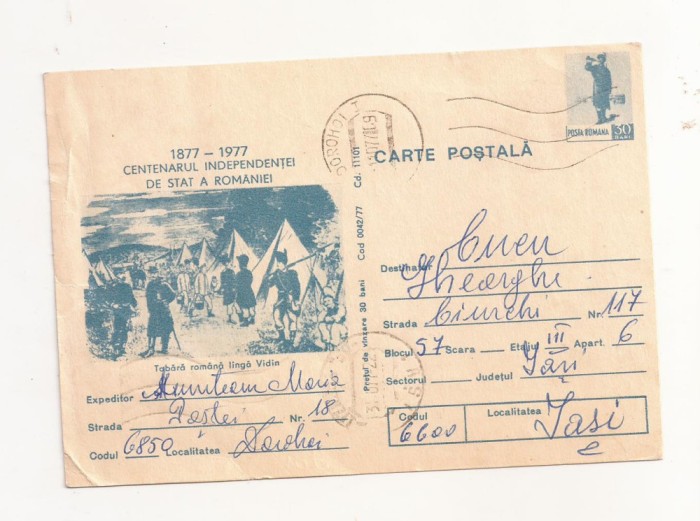 1877 – 1977
CENTENARUL INDEPENDENȚEI
DE STAT A ROMÂNIEI
Tabără română lîngă Vidin
Expeditor Munteanu Maria
Strada Poștei Nr. 18
Codul 6850 Localitatea Dorohoi
Prețul de vînzare 30 bani Cod 0042/77 Cd. 11101
POSTA ROMANA 30 BANI
CARTE POȘTALĂ
Cucu
Destinatar Gheorghe
Strada Ciurchi Nr. 117
Blocul 57 Scara Etajul III Apart. 6
Sectorul Județul Iași
Codul Localitatea
6600 Iasi